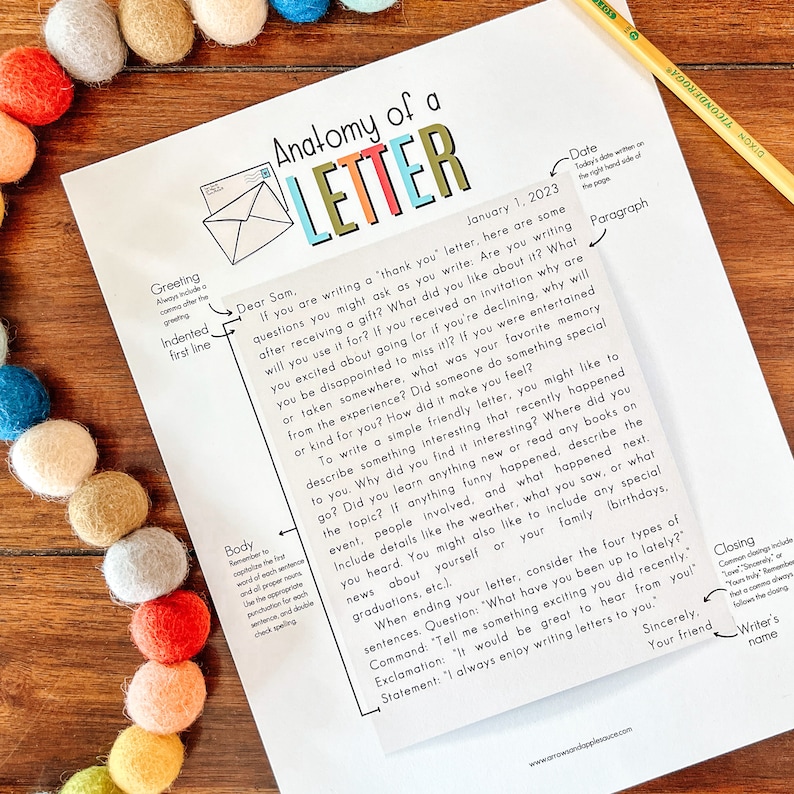 Anatomy of a
LETTER
Date
Today's date written on
the right hand side of
the page.
January 1, 2023
Paragraph
Greeting
Always include a
comma after the
greeting.
Indented
first line
Dear Sam,
If you are writing a "thank you" letter, here are some
questions you might ask as you write: Are you writing
after receiving a gift? What did you like about it? What
will you use it for? If you received an invitation why are
you excited about going (or if you're declining, why will
you be disappointed to miss it)? If you were entertained
or taken somewhere, what was your favorite memory
from the experience? Did someone do something special
or kind for you? How did it make you feel?
To write a simple friendly letter, you might like to
describe something interesting that recently happened
to you. Why did you find it interesting? Where did you
go? Did you learn anything new or read any books on
the topic? If anything funny happened, describe the
event, people involved, and what happened next.
Include details like the weather, what you saw, or what
you heard. You might also like to include any special
news about yourself or your family (birthdays,
graduations, etc.).
When ending your letter, consider the four types of
sentences. Question: "What have you been up to lately?"
Command: "Tell me something exciting you did recently."
Exclamation: "It would be great to hear from you!"
Statement: "I always enjoy writing letters to you."
Sincerely,
Your friend
Body
Remember to
capitalize the first
word of each sentence
and all proper nouns.
Use the appropriate
punctuation for each
sentence, and double
check spelling.
Closing
Common closings include
"Love", "Sincerely," or
"Yours truly." Remember
that a comma always
follows the closing.
Writer's
name
www.arrowsandapplesauce.com
DIXON TICONDEROGA
SOFT